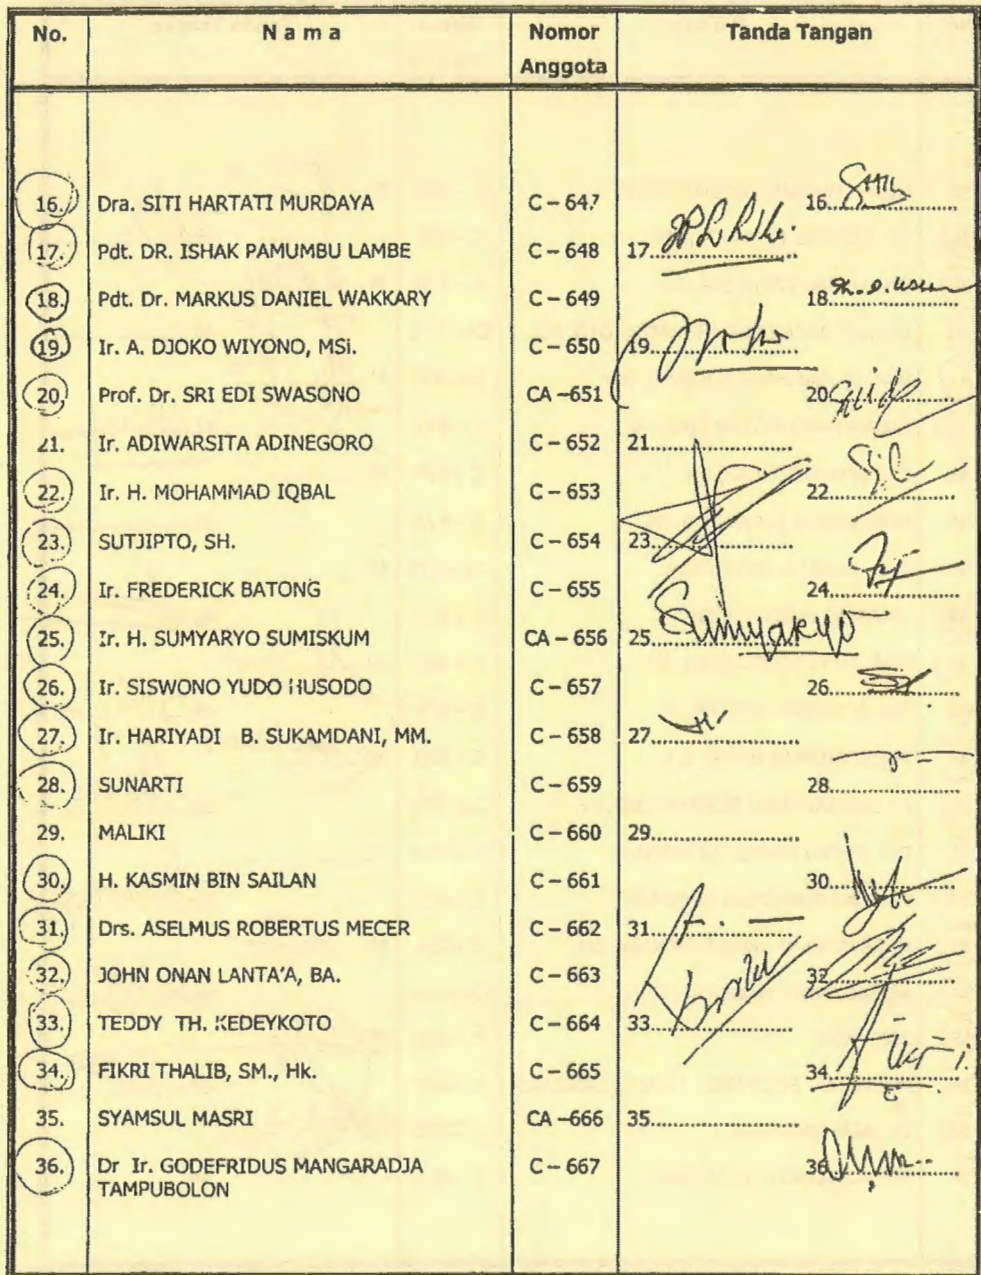 No. N a m a Nomor Anggota Tanda Tangan
16. Dra. SITI HARTATI MURDAYA C – 647 16
17. Pdt. DR. ISHAK PAMUMBU LAMBE C – 648 17
18. Pdt. Dr. MARKUS DANIEL WAKKARY C – 649 18
19. Ir. A. DJOKO WIYONO, MSi. C – 650 19
20. Prof. Dr. SRI EDI SWASONO CA –651 20
21. Ir. ADIWARSITA ADINEGORO C – 652 21
22. Ir. H. MOHAMMAD IQBAL C – 653 22
23. SUTJIPTO, SH. C – 654 23
24. Ir. FREDERICK BATONG C – 655 24
25. Ir. H. SUMYARYO SUMISKUM CA – 656 25 Sumyaryo
26. Ir. SISWONO YUDO HUSODO C – 657 26
27. Ir. HARIYADI B. SUKAMDANI, MM. C – 658 27
28. SUNARTI C – 659 28
29. MALIKI C – 660 29
30. H. KASMIN BIN SAILAN C – 661 30
31. Drs. ASELMUS ROBERTUS MECER C – 662 31
32. JOHN ONAN LANTA'A, BA. C – 663 32
33. TEDDY TH. KEDEYKOTO C – 664 33
34. FIKRI THALIB, SM., Hk. C – 665 34 Fikri
35. SYAMSUL MASRI CA –666 35
36. Dr Ir. GODEFRIDUS MANGARADJA C – 667 36
TAMPUBOLON